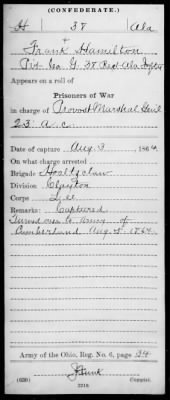 (CONFEDERATE.)
H 38 Ala
Frank Hamilton
Pvt. Co. G. 38 Reg Ala Infty
Appears on a roll of
Prisoners of War
in charge of Provost Marshal Genl
23. A. C.
Date of capture Aug. 3, 1864.
On what charge arrested
Brigade Holtzclaw
Division Clayton
Corps Lee
Remarks: Captured
Turned over to Army of
Cumberland Aug. 5, 1864.
Army of the Ohio, Reg. No. 6, page 34
(639) Copyist.